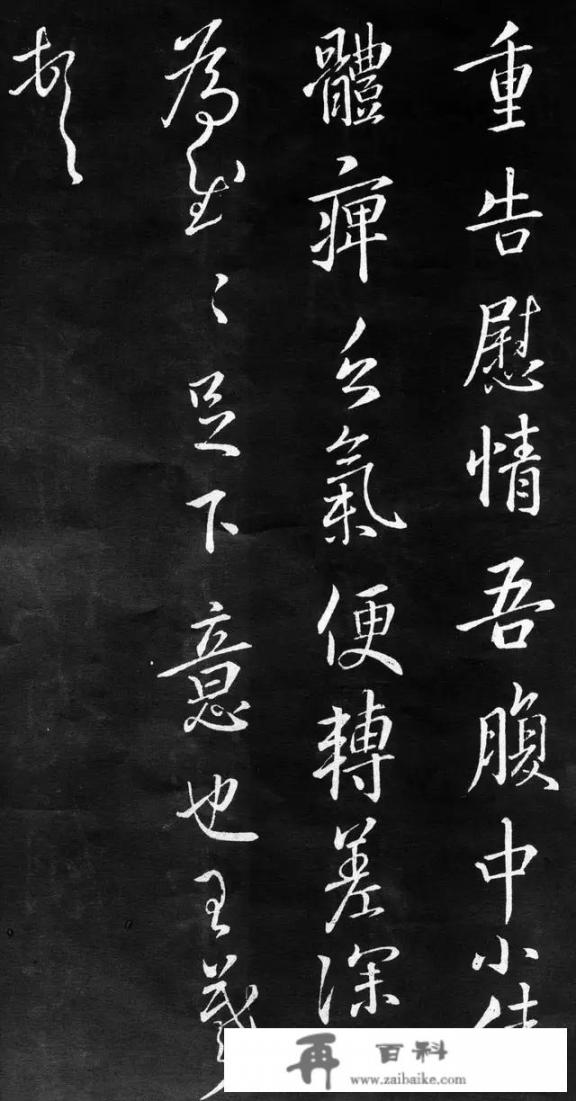 重告慰情吾腹中小佳
體痺乏氣便轉差深
為慰〻足下意也王羲
頓首
再 百科
www.zaibaike.com